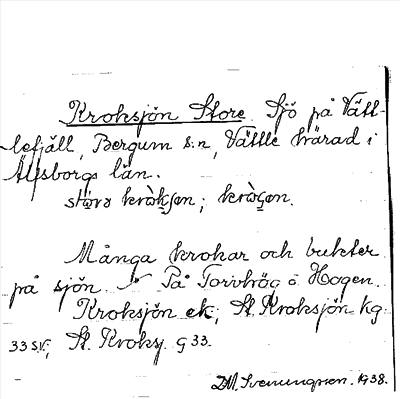 Kroksjön Store. Sjö på Vätt-
lefjäll, Bergum s:n, Vättle härad i
Älfsborgs län.
Många krokar och bukter
på sjön. På Torvhög o Hogen.
Kroksjön ek; St. Kroksjön kg.
33 sv; St. Kroksj. G 33.
Svenungsson. 1938.